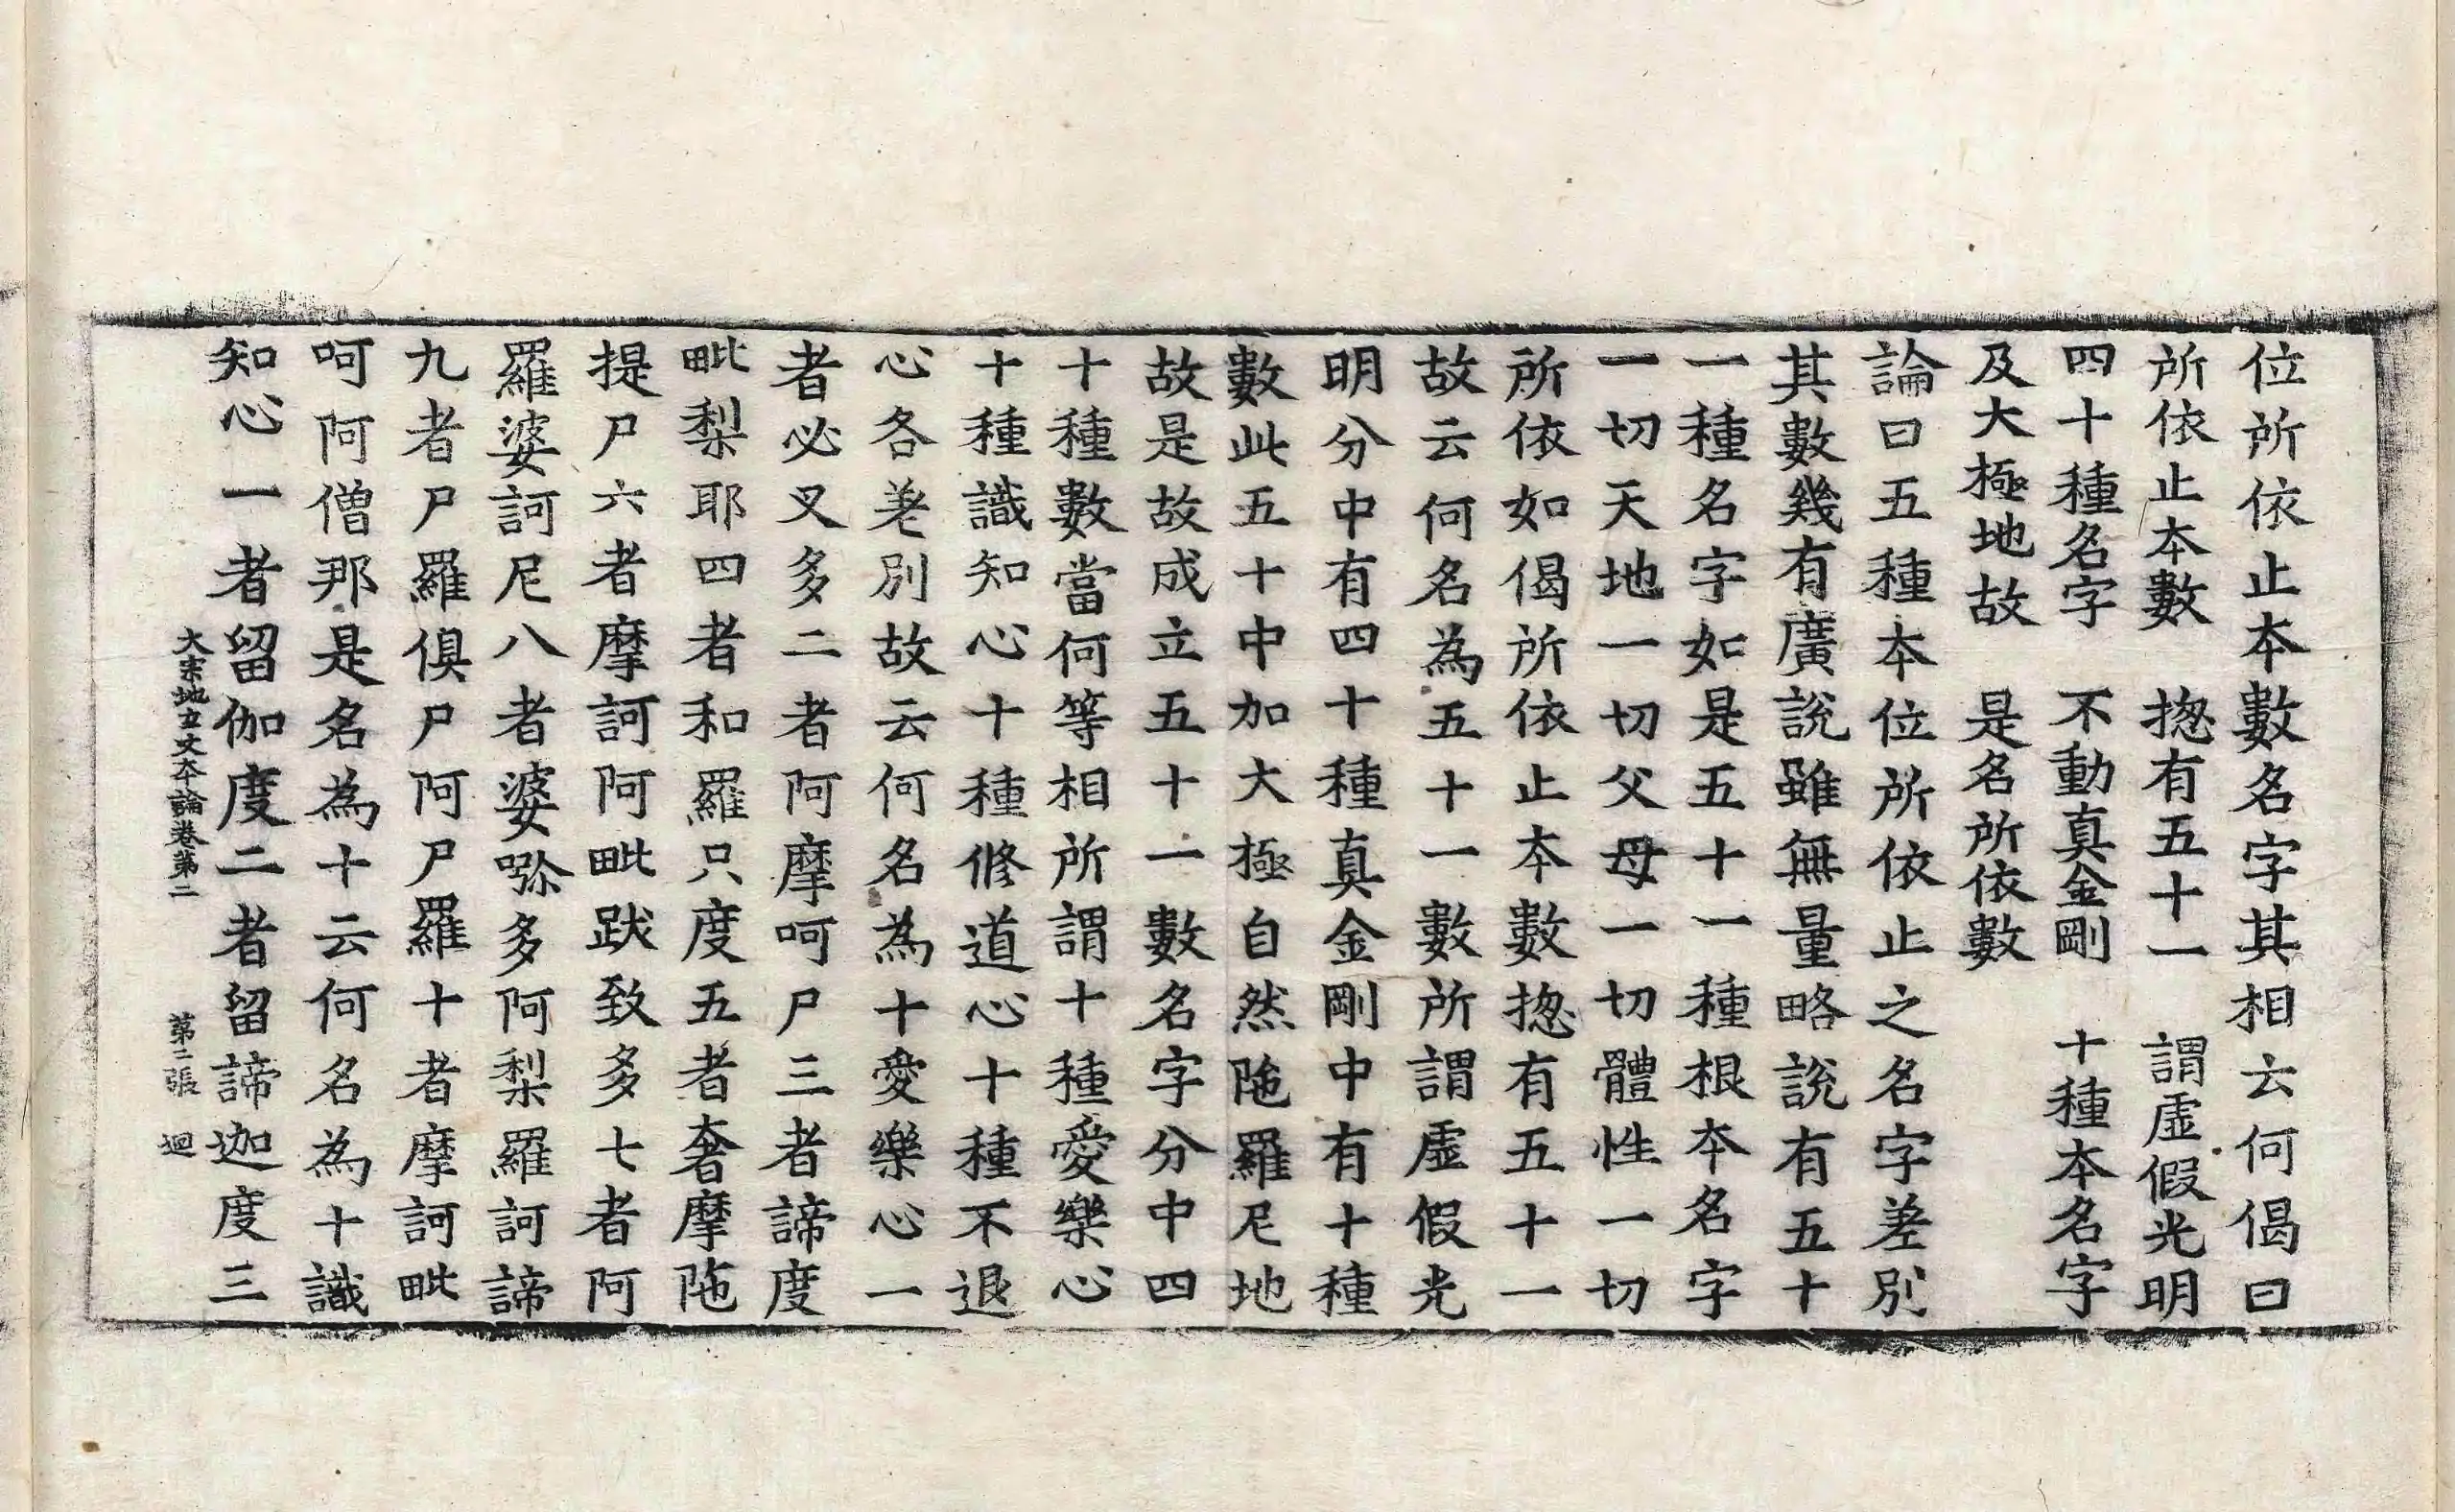 位所依止本數名字其相云何偈曰
所依止本數　揔有五十一　謂虛假光明
四十種名字　不動真金剛　十種本名字
及大極地故　是名所依數
論曰五種本位所依止之名字差別
其數幾有廣說雖無量略說有五十
一種名字如是五十一種根本名字
一切天地一切父母一切體性一切
所依如偈所依止本數揔有五十一
故云何名為五十一數所謂虛假光
明分中有四十種真金剛中有十種
數此五十中加大極自然陁羅尼地
故是故成立五十一數名字分中四
十種數當何等相所謂十種愛樂心
十種識知心十種修道心十種不退
心各差別故云何名為十愛樂心一
者必叉多二者阿摩呵尸三者諦度
毗梨耶四者和羅只度五者奢摩陁
提尸六者摩訶阿毗跋致多七者阿
羅婆訶尼八者婆㖿多阿梨羅訶諦
九者尸羅俱尸阿尸羅十者摩訶毗
呵阿僧那是名為十云何名為十識
知心一者留伽度二者留諦迦度三
大宗地玄文本論卷第二　第二張　迴